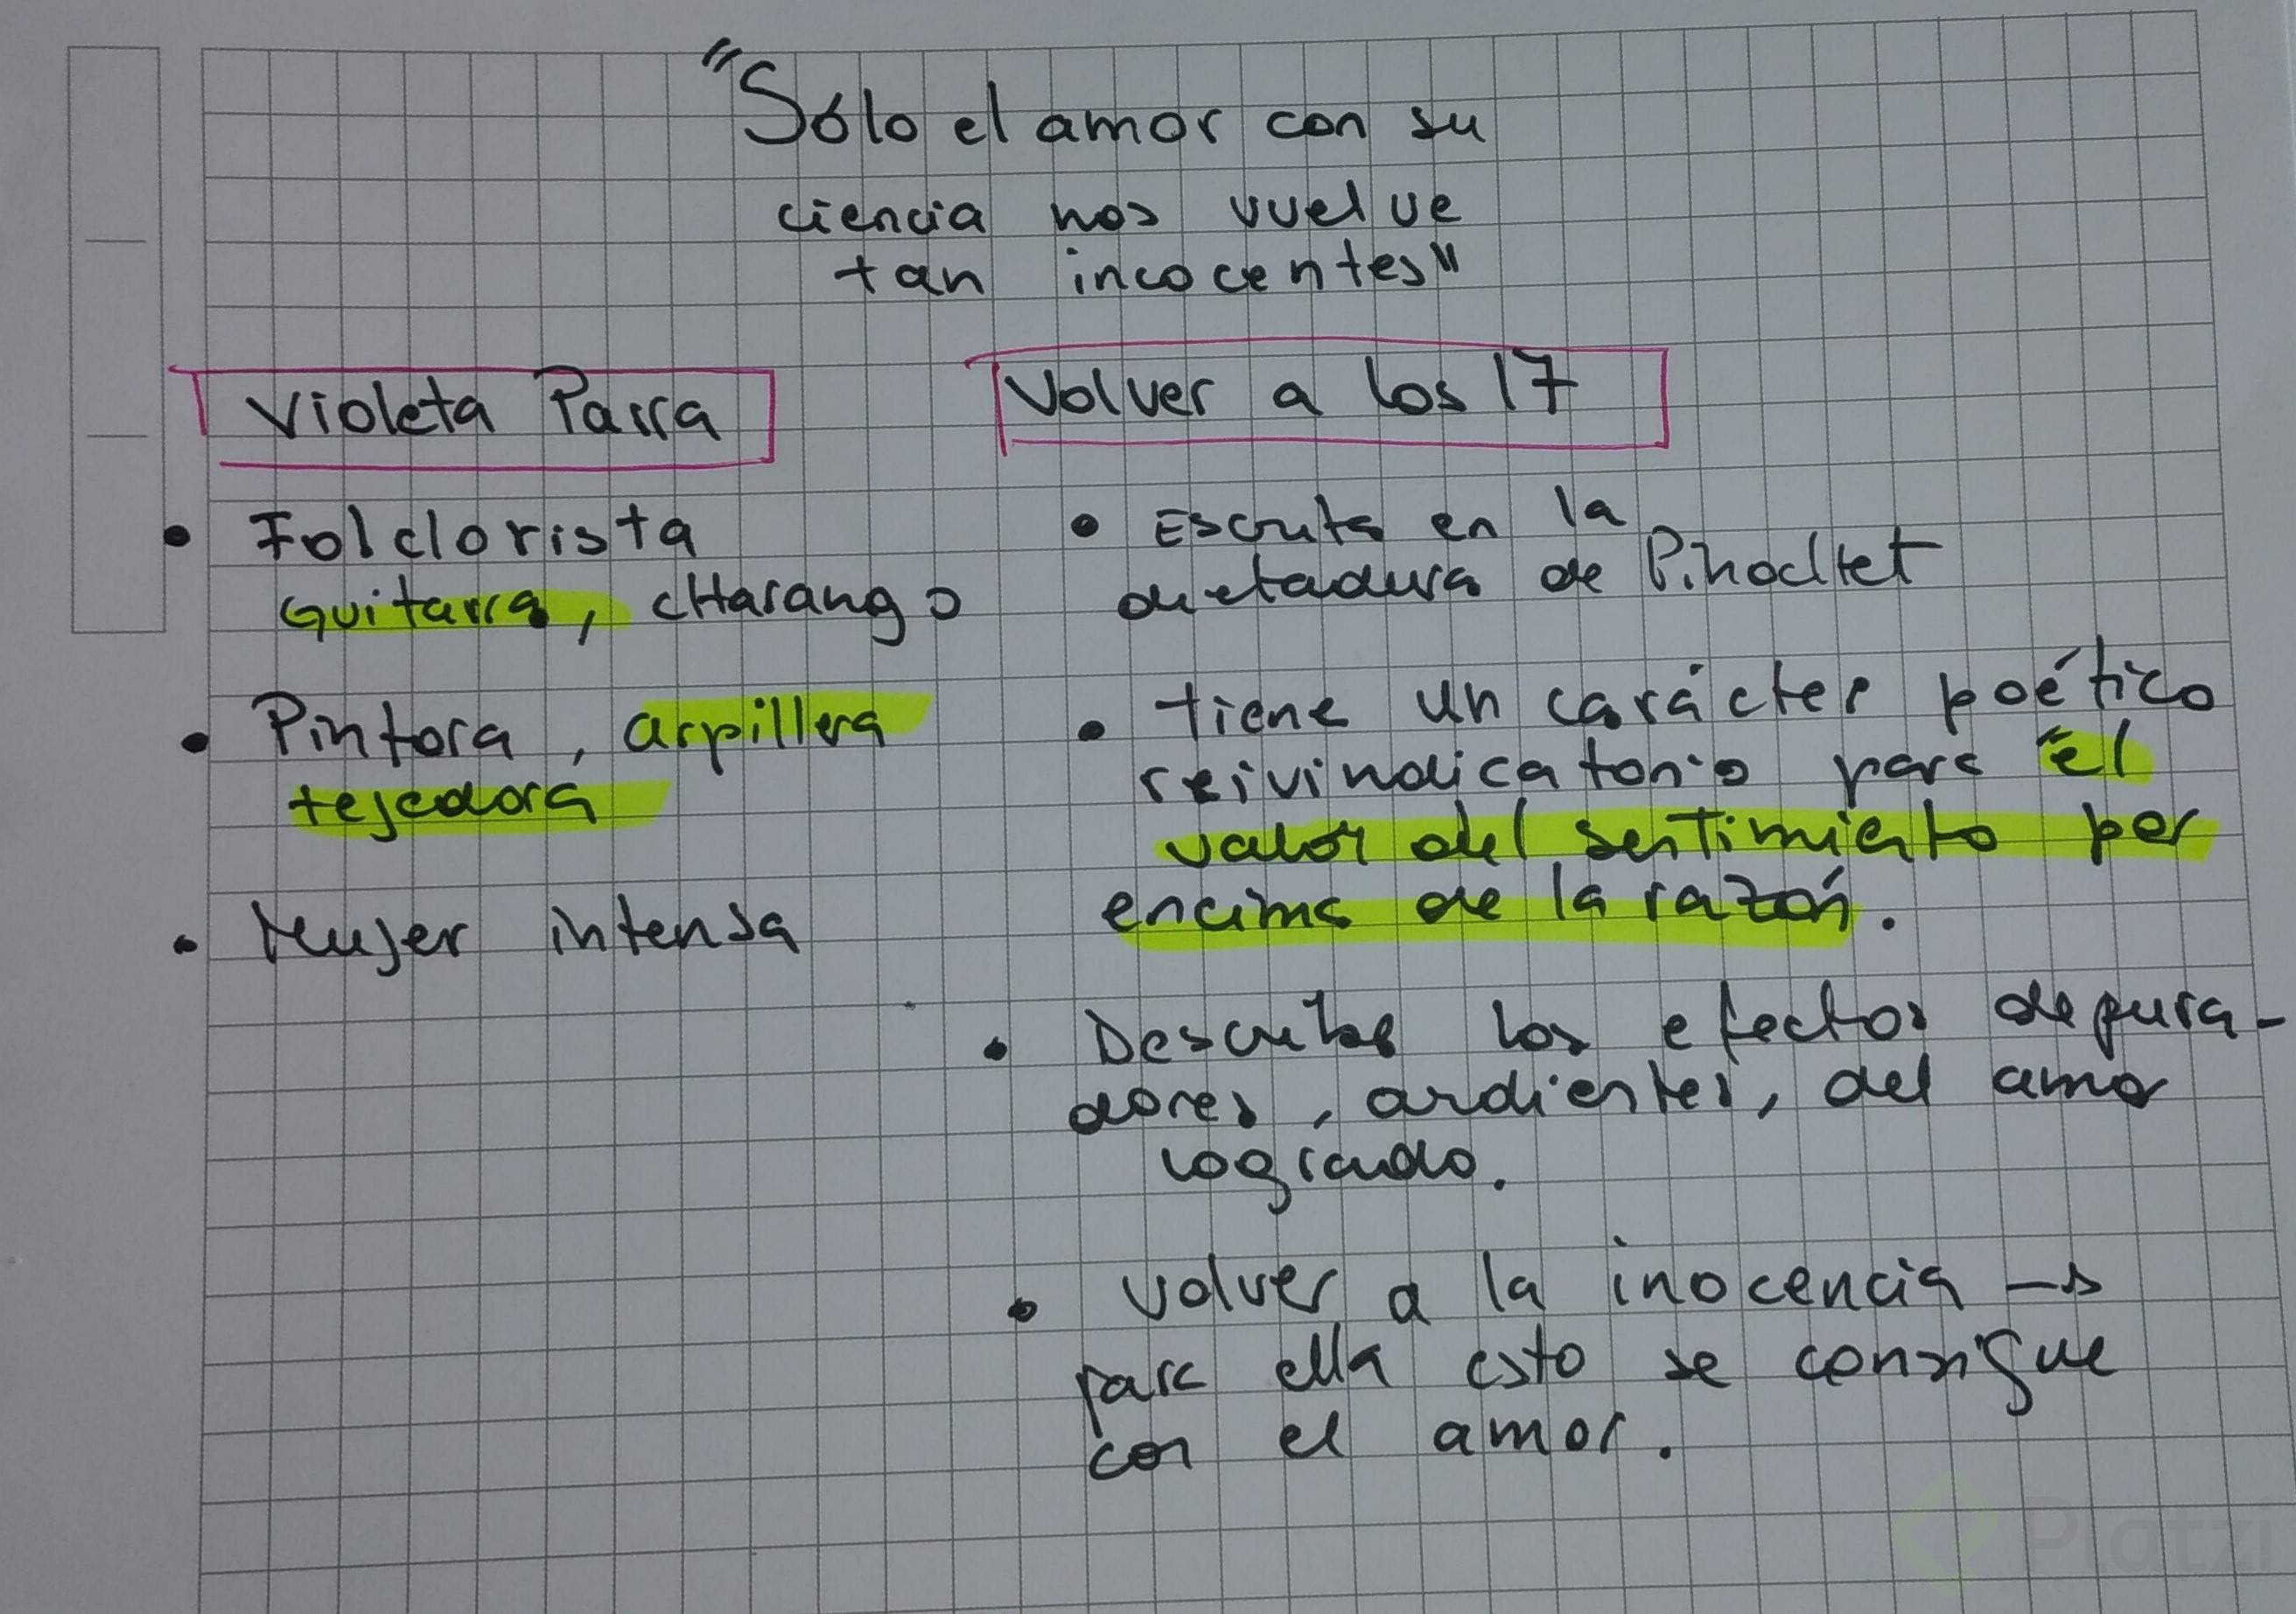 "Sólo el amor con su
ciencia nos vuelve
tan incocentes"
Violeta Parra
• Folclorista
Guitarra, cHarango
• Pintora, arpillera
tejedora
• Mujer intensa
Volver a los 17
• Escrita en la
dictadura de Pinochet
• tiene un carácter poético
reivindicatorio para el
valor del sentimiento por
encima de la razón.
• Describe los efectos depura-
dores, ardientes, del amor
logrado.
• volver a la inocencia →
para ella esto se consigue
con el amor.
Platzi